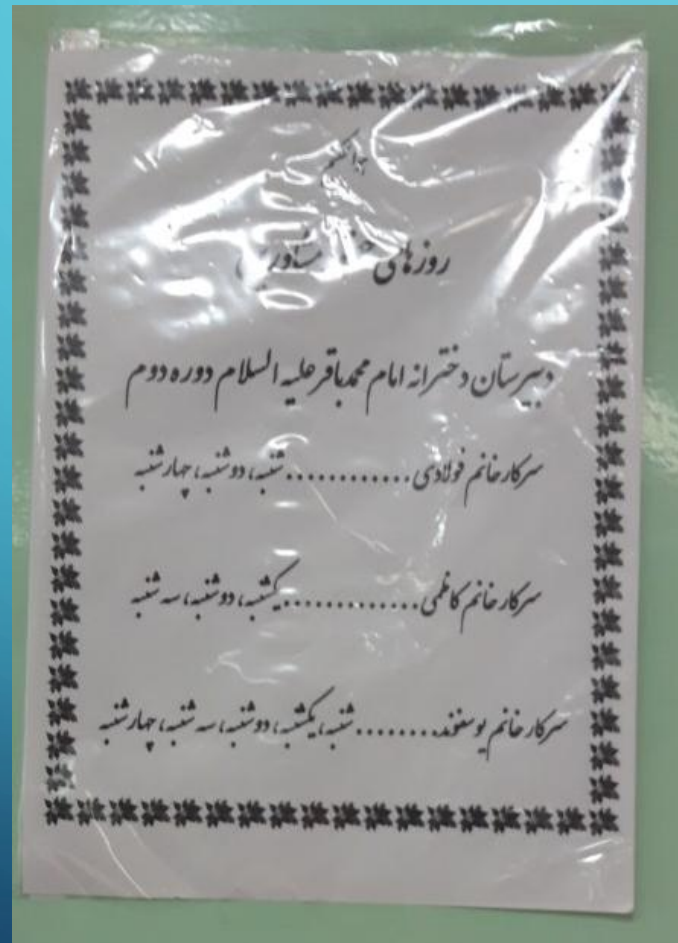 روزهای
دبیرستان دخترانه امام محمدباقر علیه السلام دوره دوم
سرکار خانم فولادی............شنبه، دوشنبه، چهارشنبه
سرکار خانم کاظمی.............یکشنبه، دوشنبه، سه شنبه
سرکار خانم یوسفوند.........شنبه، یکشنبه، دوشنبه، سه شنبه، چهارشنبه